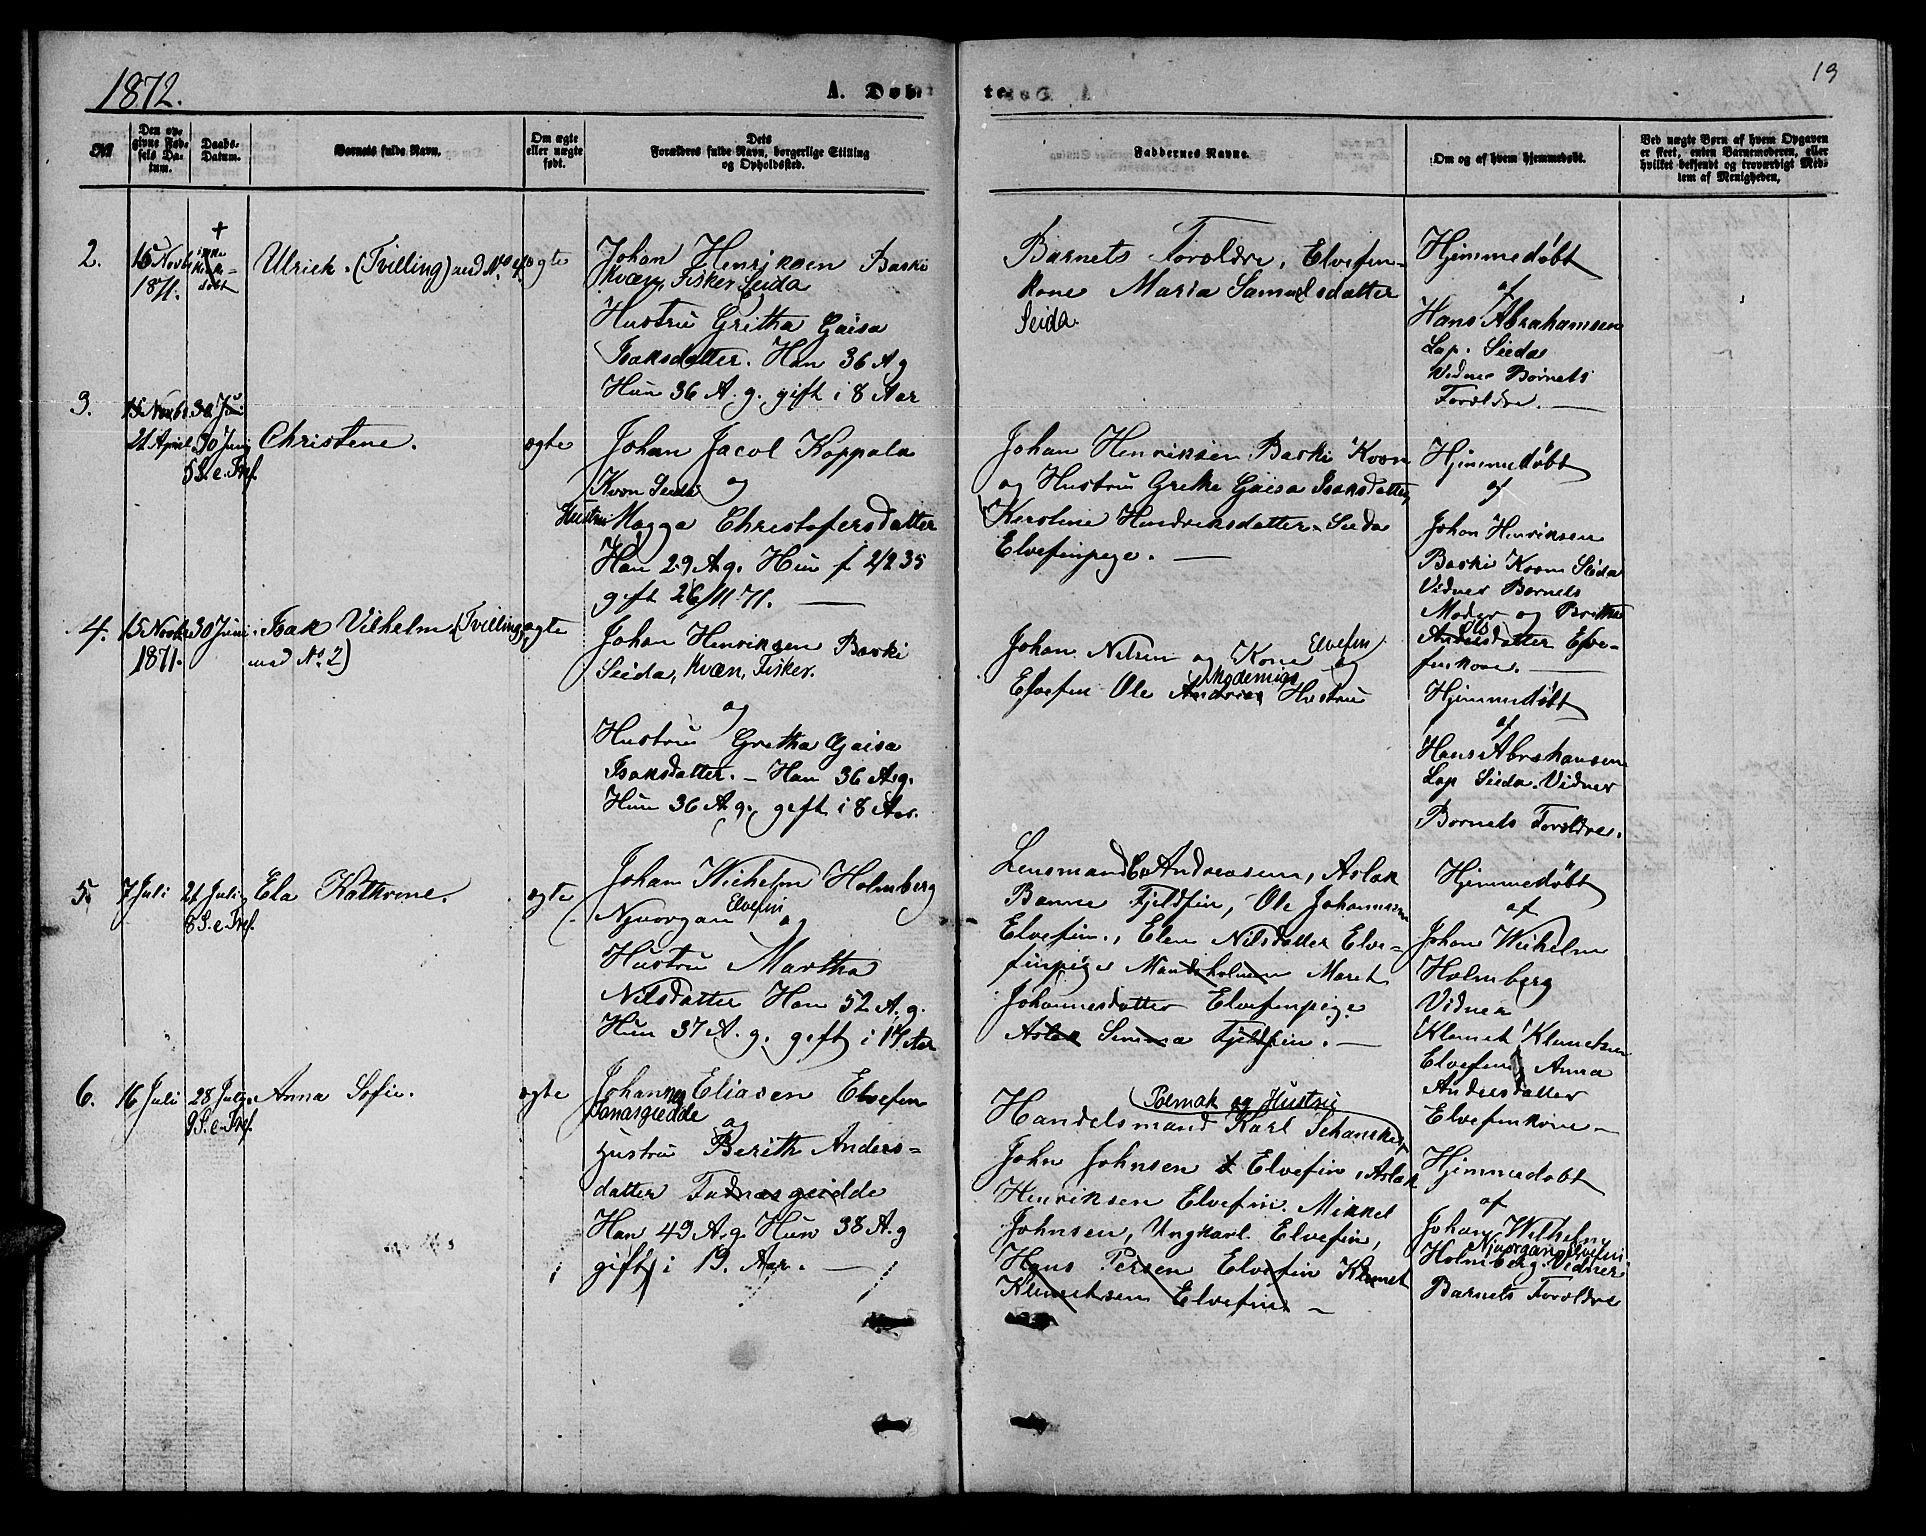 1872.
A. Døb
te
19
No
Den opgivne Fødsels Datum.
Daabs-Datum.
Barnets fulde Navn.
Om ægte eller uægte født.
Dets Forældres fulde Navn, borgerlige Stilling og Opholdssted.
Faddernes Navne.
Om og af hvem hjemmedøbt.
Ved uægte Børn af hvem Opgaven er skeet, enten Barnemoderen, eller hvilket bekjendt og troværdigt Medlem af Menigheden.
2.
15 Novbr
1871.
+
ikke
kirke-
døbt
Ulrich. (Tvilling) med No 4.
ægte
Johan Henriksen Baski
Kvæn, Fisker Seida
Hustru Gretha Gaisa
Isaksdatter. Han 36 A g
Hun 36 A. g. gift i 8 Aar
Barnets Foroldre, Elvefin-
kone Maria Samuelsdatter
Seida.
Hjemmedøbt
af
Hans Abrahamsen
Lap. Seida
Vidner Børnets
Foroldre.
3.
15 Novbr 30 Juni
21 April
30 Juni
5 S. e. Tref.
Christene.
ægte
Johan Jacob Koppala
Kvæn Seida og
Hustru Magga Christofersdatter
Han 29 A g. Hun f 2/2 35
gift 26/11 71.
Johan Henriksen Baski Kvæn
og Hustru Grethe Gaisa Isaksdatter,
Keroline Hendriksdatter Seida
Elvefinpige.
Hjemmedøbt
af
Johan Henriksen
Baski Kvæn Seida
Vidner Barnets
Moder og Brithe
Ols
Andersdatter Elve-
finkone.
4.
15 Novbr
1871.
30 Juni
Isak Vilhelm (Tvilling
med No. 2)
ægte
Johan Henriksen Baski
Seida, Kvæn, Fisker.
og
Hustru Gretha Gaisa
Isaksdatter. – Han 36 A. g.
Hun 36 A. g., gift i 8 Aar.
Johan Nilsen og Kone Elvefin og
Elvefin Ole Andrias Hustru
Hjemmedøbt
af
Hans Abrahansen
Lap Seida. Vidner
Børnets Foroldre.
5.
7 Juli
21 Juli
8 S. e. Tref.
Ela Kathrene.
ægte
Johan Wilhelm Holmberg
Njuorgan Elvefin og
Hustru Martha
Nilsdatter Han 52 A. g.
Hun 37 A. g. gift i 17 Aar
Lensmand Andreasen, Aslak
Banne Fjeldfin, Ole Johannesen
Elvefin., Elen Nilsdatter Elve-
finpige Maret
Johannesdatter Elvefinpige
Aslak Fjeldfin.
Hjemmedøbt
af
Johan Wilhelm
Holmberg
Vidner
Klemet Klemetsen
Elvefin, Anna
Andersdatter
Elvefinkone
6.
16 Juli
28 Juli
9 S. e. Tref.
Anna Sofie.
ægte
Johannes Eliasen Elvefin
og
Hustru Berith Anders-
datter
Han 49 A. g. Hun 38 A. g
gift i 19. Aar.
Polmak og Hustru
Handelsmand Karl Schanke,
John Johnsen Elvefin, Aslak
Henriksen Elvefin. Mikkel
Johnsen, Ungkarl Elvefin,
Hans Persen Elvefin Klemet
Klemetsen Elvefin
Hjemmedøbt
af
Johan Wilhelm
Njuorgan Elvefin
Holmberg. Vidner
Barnets Foroldre